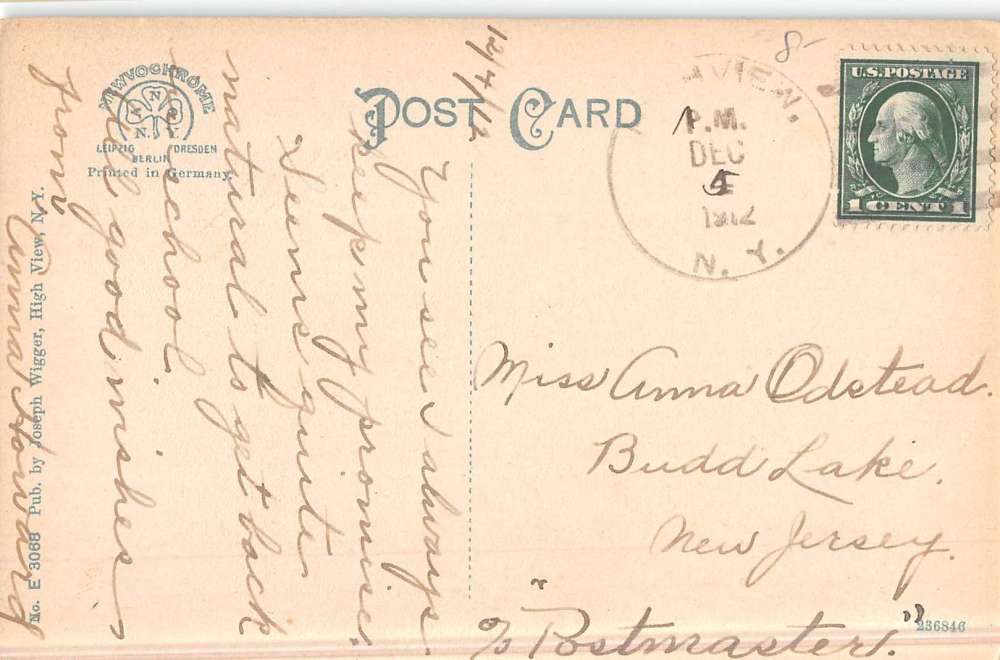 12/4/12
You see I always
keep my promise.
Seems quite
natural to get back
to school.
All good wishes
from
Anna Howard
NEWVOCHROME
A N R
N. Y.
LEIPZIG DRESDEN
BERLIN
Printed in Germany.
No. E 3068 Pub. by Joseph Wigger, High View, N.Y.
POST CARD
8-
HVIEW.
P.M.
DEC
4
1912
N. Y.
U.S. POSTAGE
1 CENT 1
Miss Anna Odstead.
Budd Lake.
New Jersey.
c/o "Postmaster."
236846